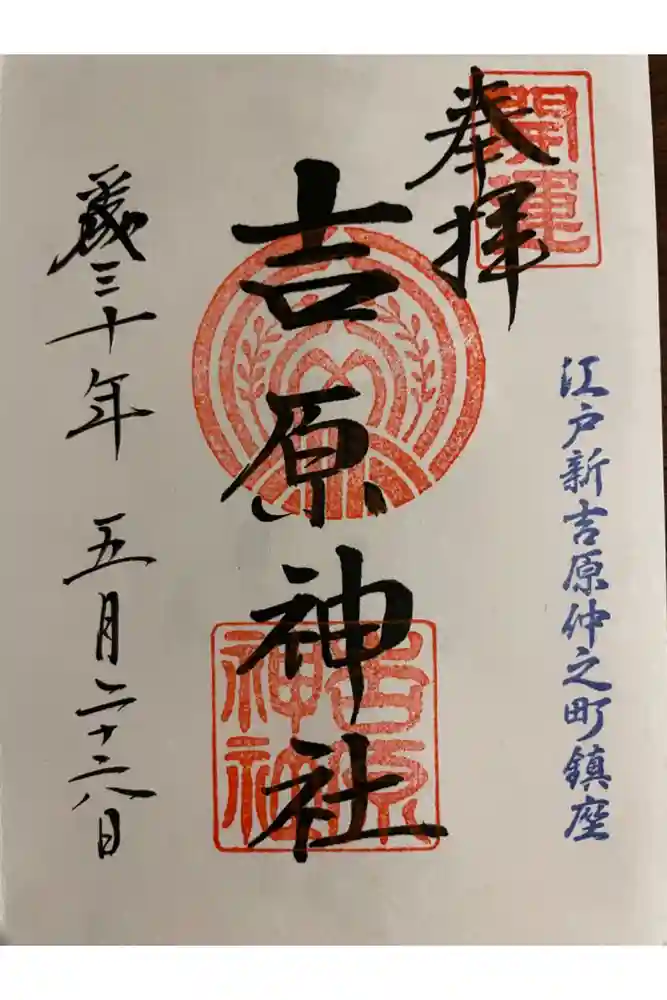 江戸新吉原仲之町鎮座
開運
奉拝
吉原神社
吉原
平成三十年 五月二十六日